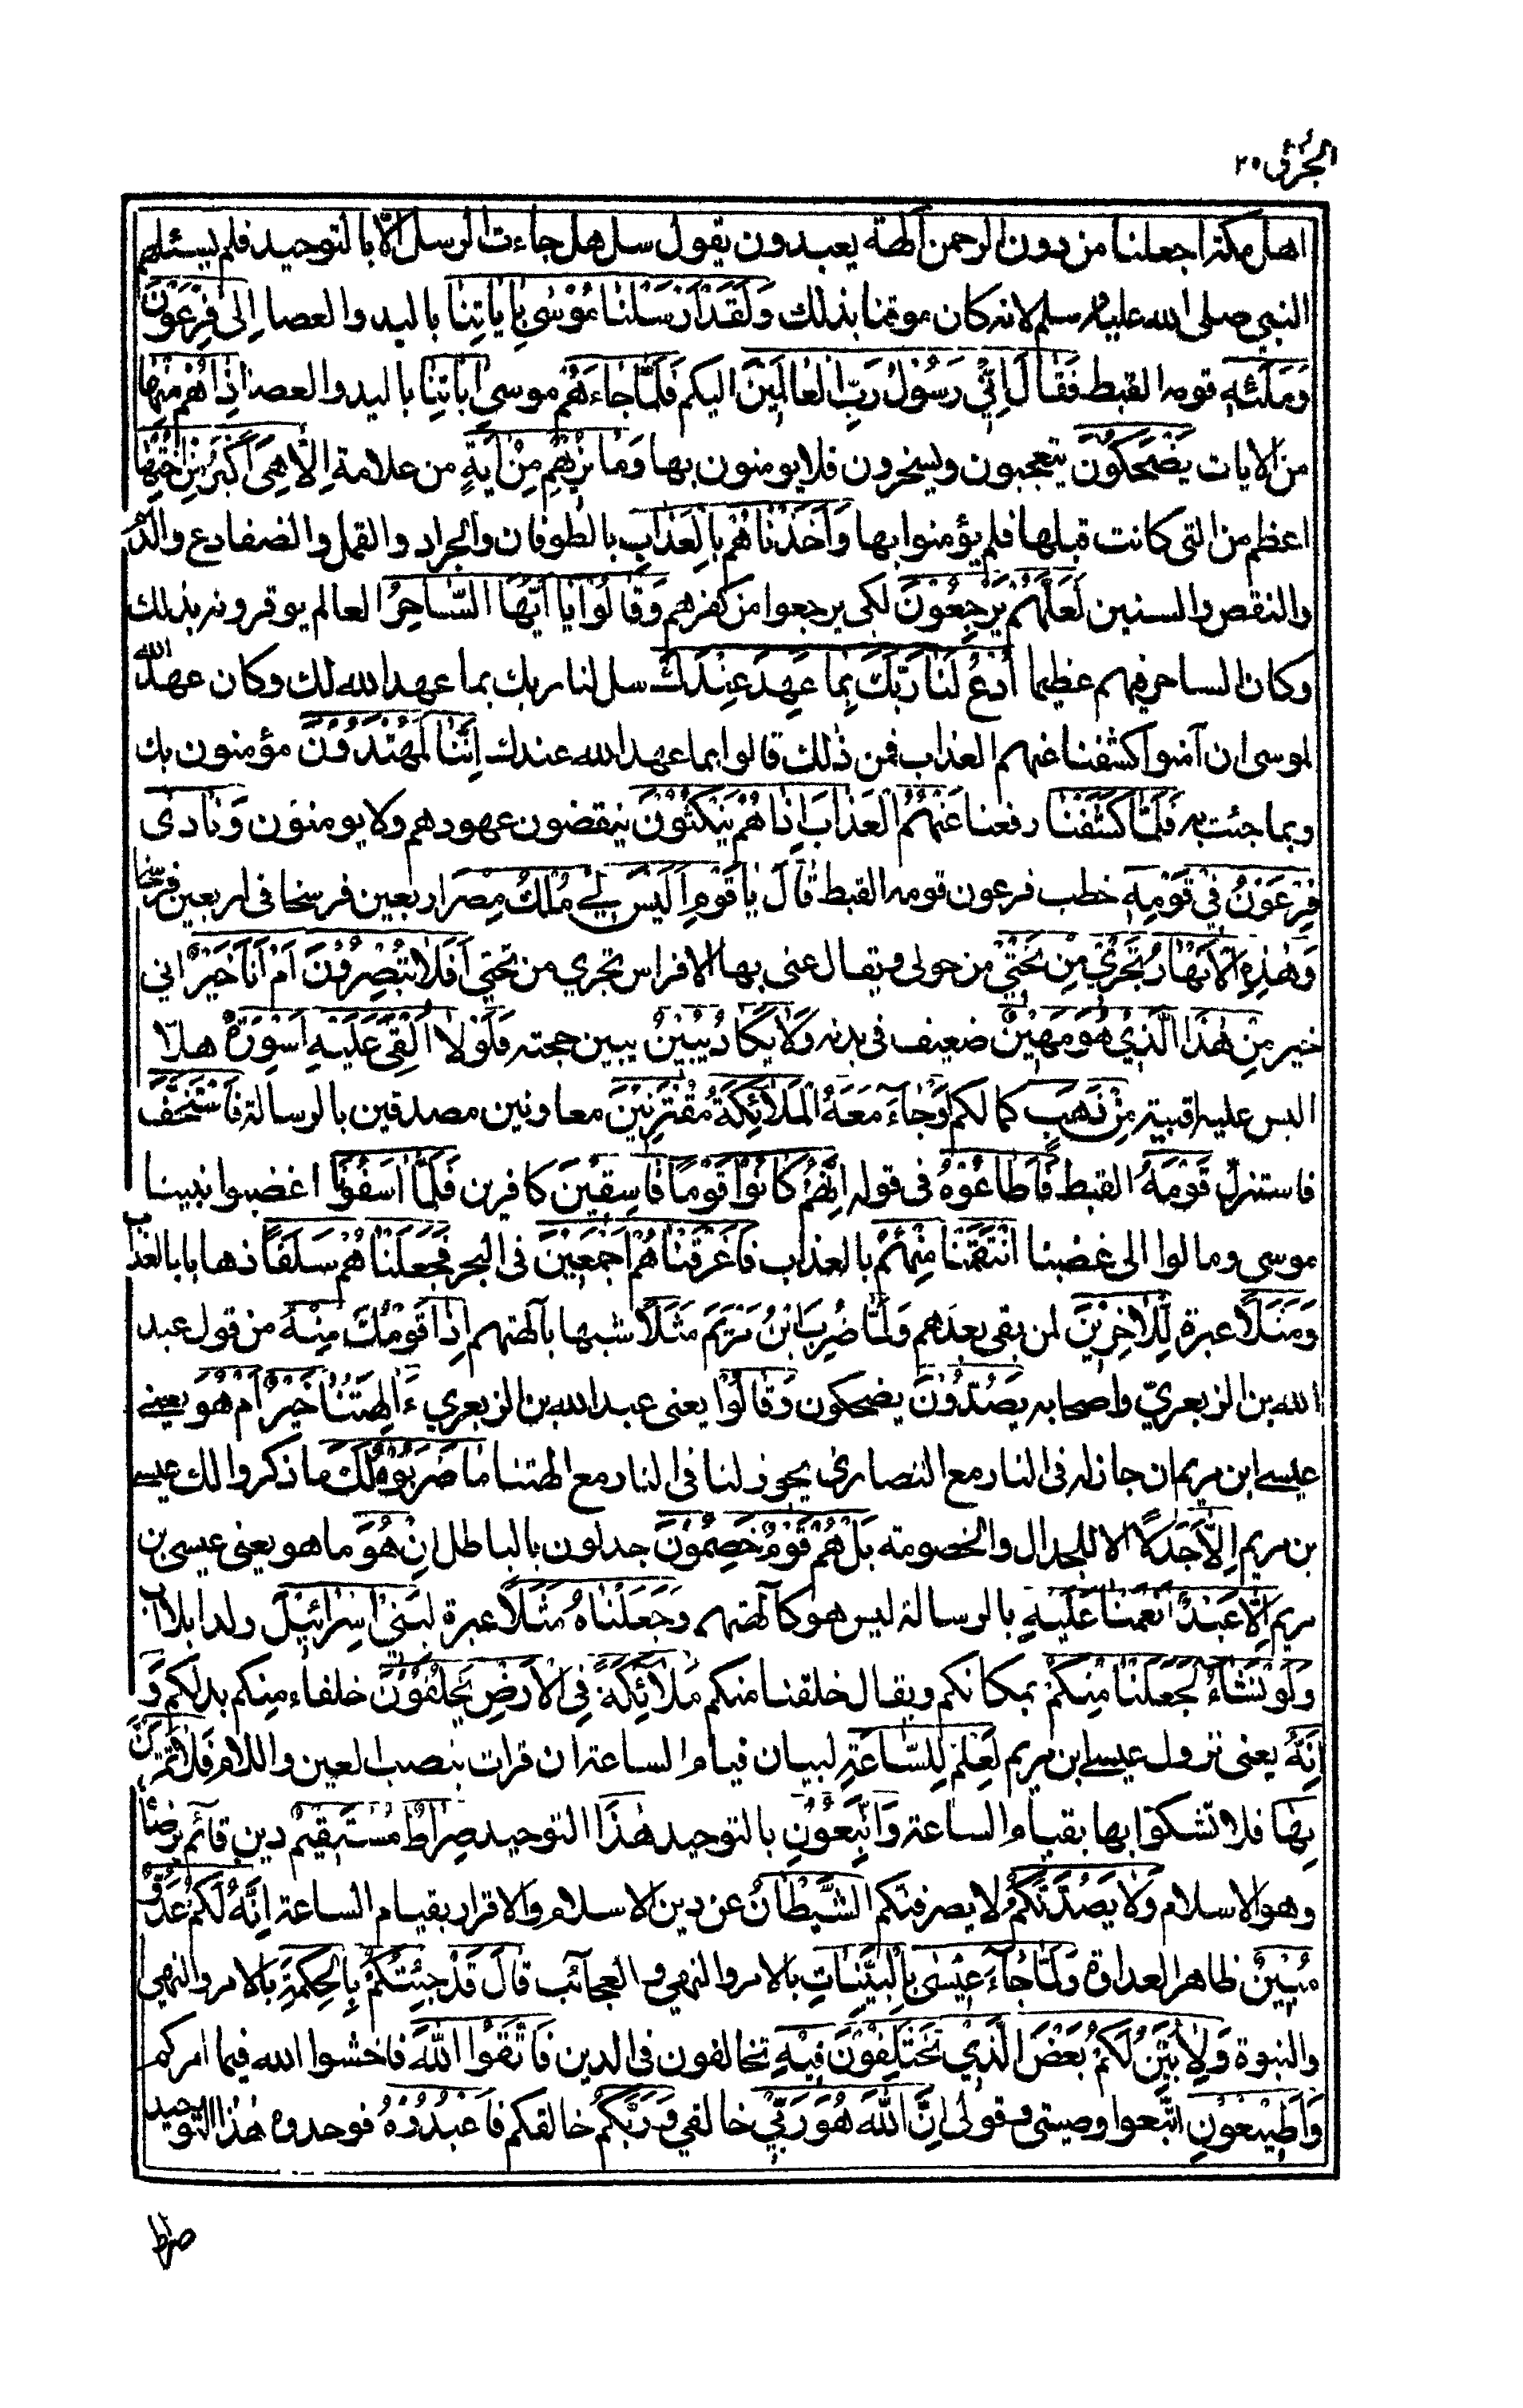 الجزؤ ٢٥
اهل مكة اجعلنا من دون الرحمن آلهة يعبدون يقول سل هل جاءت الرسل الّا بالتوحيد فلم يسئلهم
النبي صلى الله عليه وسلم لانه كان موقنا بذلك وَلَقَدْ اَرْسَلْنَا مُوْسٰى بِاٰيَاتِنَا باليد والعصا اِلٰى فِرْعَوْنَ
وَمَلَئِهٖ قومه القبط فَقَالَ اِنِّيْ رَسُوْلُ رَبِّ الْعَالَمِيْنَ اليكم فَلَمَّا جَاءَهُمْ موسى بِاٰيَاتِنَا باليد والعصا اِذَا هُمْ مِنْهَا
من الايات يَضْحَكُوْنَ يتعجبون ويسخرون فلا يومنون بها وَمَا نُرِيْهِمْ مِنْ اٰيَةٍ من علامة اِلَّا هِيَ اَكْبَرُ مِنْ اُخْتِهَا
اعظم من التى كانت قبلها فلم يؤمنوا بها وَاَخَذْنَاهُمْ بِالْعَذَابِ بالطوفان والجراد والقمل والضفادع والدم
والنقص والسنين لَعَلَّهُمْ يَرْجِعُوْنَ لكى يرجعوا من كفرهم وَقَالُوْا يَا اَيُّهَا السَّاحِرُ العالم يوقرونه بذلك
وكان الساحر فيهم عظيما اُدْعُ لَنَا رَبَّكَ بِمَا عَهِدَ عِنْدَكَ سل لنا ربك بما عهد الله لك وكان عهد الله
لموسى ان آمنوا كشفنا عنهم العذاب فمن ذلك قالوا بما عهد الله عندك اِنَّنَا لَمُهْتَدُوْنَ مؤمنون بك
وبما جئت به فَلَمَّا كَشَفْنَا رفعنا عَنْهُمُ الْعَذَابَ اِذَا هُمْ يَنْكُثُوْنَ ينقضون عهودهم ولا يومنون وَنَادٰى
فِرْعَوْنُ فِيْ قَوْمِهٖ خطب فرعون قومه القبط قَالَ يَا قَوْمِ اَلَيْسَ لِيْ مُلْكُ مِصْرَ اربعين فرسخا فى اربعين فرسخا
وَهٰذِهِ الْاَنْهَارُ تَجْرِيْ مِنْ تَحْتِيْ من حولى ويقال عنى بها الافراس تجري من تحتى اَفَلَا تُبْصِرُوْنَ اَمْ اَنَا خَيْرٌ اني
خير مِنْ هٰذَا الَّذِيْ هُوَ مَهِيْنٌ ضعيف فى بدنه وَلَا يَكَادُ يُبِيْنُ يبين حجته فَلَوْلَا اُلْقِيَ عَلَيْهِ اَسْوِرَةٌ هلّا
البس عليه اقبية مِنْ ذَهَبٍ كما لكم اَوْ جَاءَ مَعَهُ الْمَلَائِكَةُ مُقْتَرِنِيْنَ معاونين مصدقين بالرسالة فَاسْتَخَفَّ
فاستنزل قَوْمَهُ القبط فَاَطَاعُوْهُ فى قوله اِنَّهُمْ كَانُوْا قَوْمًا فَاسِقِيْنَ كافرين فَلَمَّا اٰسَفُوْنَا اغضبوا نبينا
موسى ومالوا الى غضبنا انْتَقَمْنَا مِنْهُمْ بالعذاب فَاَغْرَقْنَاهُمْ اَجْمَعِيْنَ فى البحر فَجَعَلْنَاهُمْ سَلَفًا ذهابا بالعذاب
وَمَثَلًا عبرة لِلْاٰخِرِيْنَ لمن بقى بعدهم وَلَمَّا ضُرِبَ ابْنُ مَرْيَمَ مَثَلًا شبها بآلهتهم اِذَا قَوْمُكَ مِنْهُ من قول عبد
الله بن الزبعريّ واصحابه يَصُدُّوْنَ يضحكون وَقَالُوْا يعنى عبد الله بن الزبعري ءَاٰلِهَتُنَا خَيْرٌ اَمْ هُوَ يعنے
عيسے ابن مريم ان جاز له فى النار مع النصارى يجوز لنا فى النار مع الهتنا مَا ضَرَبُوْهُ لَكَ ما ذكروا لك عيسے
بن مريم اِلَّا جَدَلًا الا للجدال والخصومة بَلْ هُمْ قَوْمٌ خَصِمُوْنَ جدلون بالباطل اِنْ هُوَ ما هو يعنى عيسى بن
مريم اِلَّا عَبْدٌ اَنْعَمْنَا عَلَيْهِ بالرسالة ليس هو كآلهتهم وَجَعَلْنَاهُ مَثَلًا عبرة لِبَنِيْ اِسْرَائِيْلَ ولدا بلا اب
وَلَوْ نَشَاءُ لَجَعَلْنَا مِنْكُمْ بمكانكم ويقال خلقنا منكم مَلَائِكَةً فِى الْاَرْضِ يَخْلُفُوْنَ خلفاء منكم بدلكم وَ
اِنَّهُ يعنى نزول عيسے ابن مريم لَعِلْمٌ لِلسَّاعَةِ لبيان قيام الساعة ان قرات بنصب العين واللام فَلَا تَمْتَرُنَّ
بِهَا فلا تشكوا بها بقيام الساعة وَاتَّبِعُوْنِ بالتوحيد هٰذَا التوحيد صِرَاطٌ مُسْتَقِيْمٌ دين قائم يرضاه
وهو الاسلام وَلَا يَصُدَّنَّكُمُ لا يصرفنكم الشَّيْطَانُ عن دين الاسلام والاقرار بقيام الساعة اِنَّهُ لَكُمْ عَدُوٌّ
مُبِيْنٌ ظاهر العداوة وَلَمَّا جَآءَ عِيْسٰى بِالْبَيِّنَاتِ بالامر والنهي و العجائب قَالَ قَدْ جِئْتُكُمْ بِالْحِكْمَةِ بالامر والنهي
والنبوة وَلِاُبَيِّنَ لَكُمْ بَعْضَ الَّذِيْ تَخْتَلِفُوْنَ فِيْهِ تخالفون فى الدين فَاتَّقُوا اللّٰهَ فاخشوا الله فيما امركم
وَاَطِيْعُوْنِ اتّبعوا وصيتى وقولى اِنَّ اللّٰهَ هُوَ رَبِّيْ خالقي وَرَبُّكُمْ خالقكم فَاعْبُدُوْهُ فوحدوه هٰذَا التوحيد
صراط